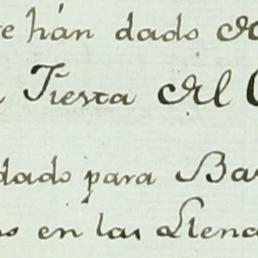 e hán dado
Fiesta del
dado para Ba
o en las Llena